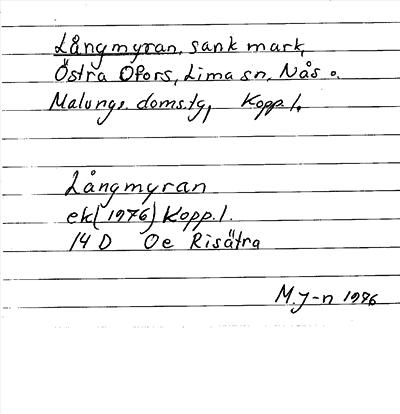 Långmyran, sank mark,
Östra Ofors, Lima sn, Nås o.
Malungs doms.tg, Kopp.l.
Långmyran
ek (1976) Kopp.l.
14 D Oe Risätra
M.J-n 1976